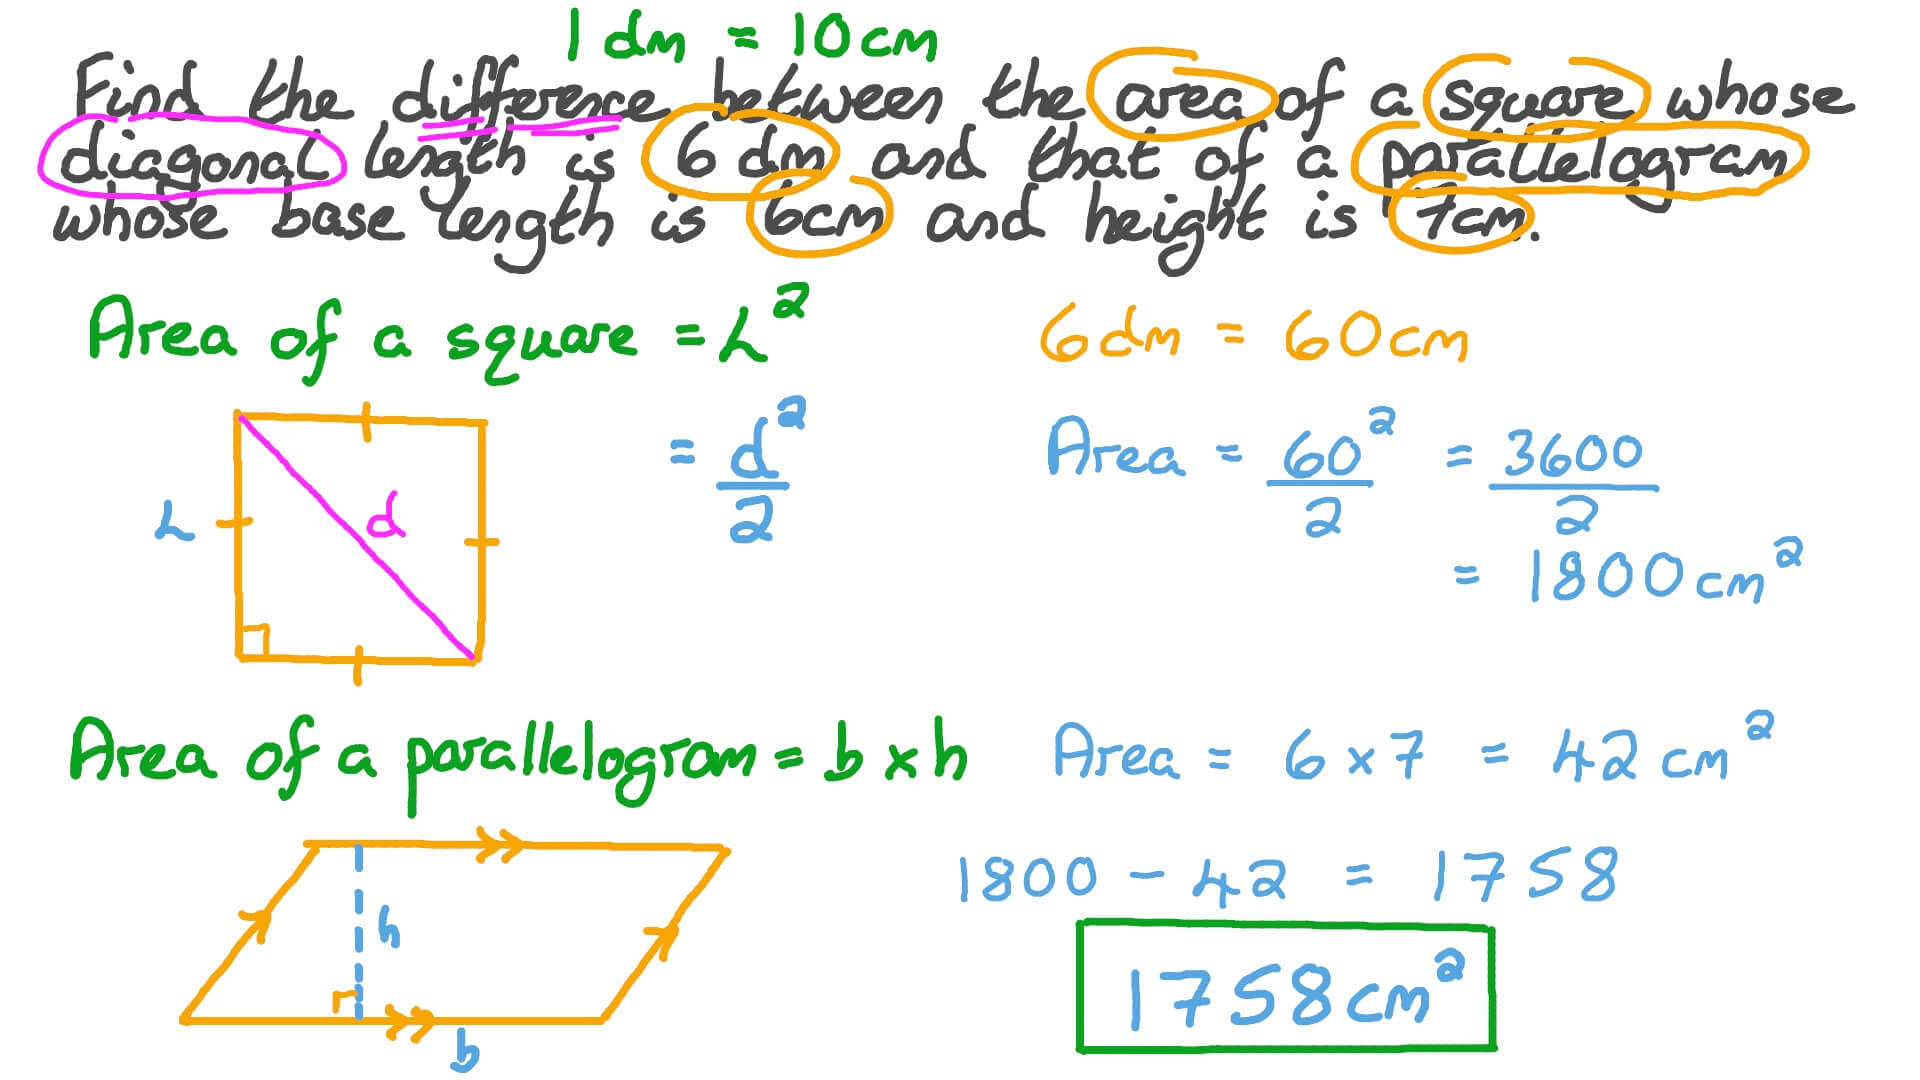 1 dm = 10cm
Find the difference between the area of a square whose
diagonal length is 6 dm and that of a parallelogram
whose base length is 6cm and height is 7cm.
Area of a square = L²
6dm = 60cm
= d²/2
Area = 60²/2 = 3600/2
= 1800cm²
L
d
Area of a parallelogram = b x h
Area = 6 x 7 = 42 cm²
h
b
1800 - 42 = 1758
1758cm²